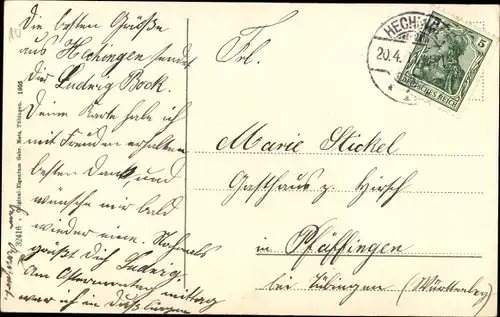 Die besten Grüße
aus Hechingen sendet
Dir Ludwig Bock.
Deine Karte habe ich
mit Freuden erhalten
besten Dank, und
wünsche mir bald
wieder eine. Nochmals
grüßt Dich Ludwig
Am Ostermontag mittag
war ich in
Frl.
Marie Stickel
Gasthaus z. Hirsch
in Pfäffingen
bei Tübingen (Württemberg)
HECHINGEN
20.4.
5
DEUTSCHES REICH
32416 Original-Eigentum Gebr. Metz, Tübingen. 1905